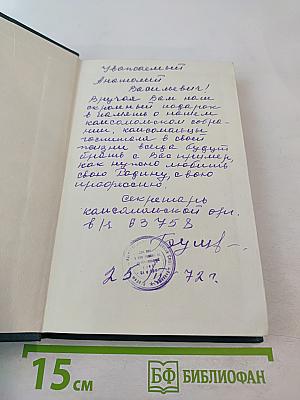 Уважаемый
Анатолий
Васильевич!
Вручая Вам наш
скромный подарок
в память о нашем
комсомольском собра-
нии, комсомольцы
госпиталя в своей
жизни всегда будут
брать с Вас пример,
как нужно любить
свою Родину, свою
профессию.
Секретарь
комсомольской орг.
в/ч 93758
25 72г.
15 см
БФ БИБЛИОФАН